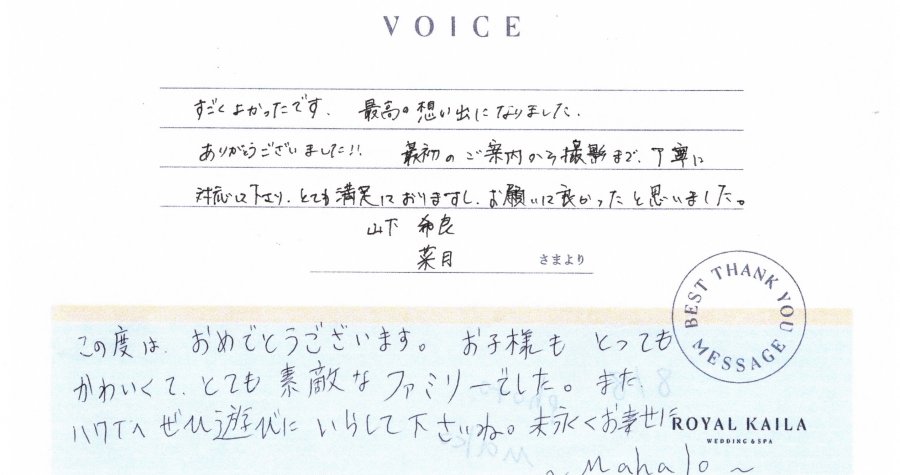 VOICE
すごくよかったです. 最高の想い出になりました.
ありがとうございました!! 最初のご案内から撮影まで、丁寧に
対応下さり、とても満足しておりますし、お願いして良かったと思いました。
山下 希良
菜月 さまより
BEST THANK YOU MESSAGE
この度は、おめでとうございます。お子様も とっても
かわいくて、とても素敵なファミリーでした。また
ハワイへ ぜひ遊びに いらして下さいね。末永くお幸せに
ROYAL KAILA
WEDDING & SPA
~ Mahalo ~